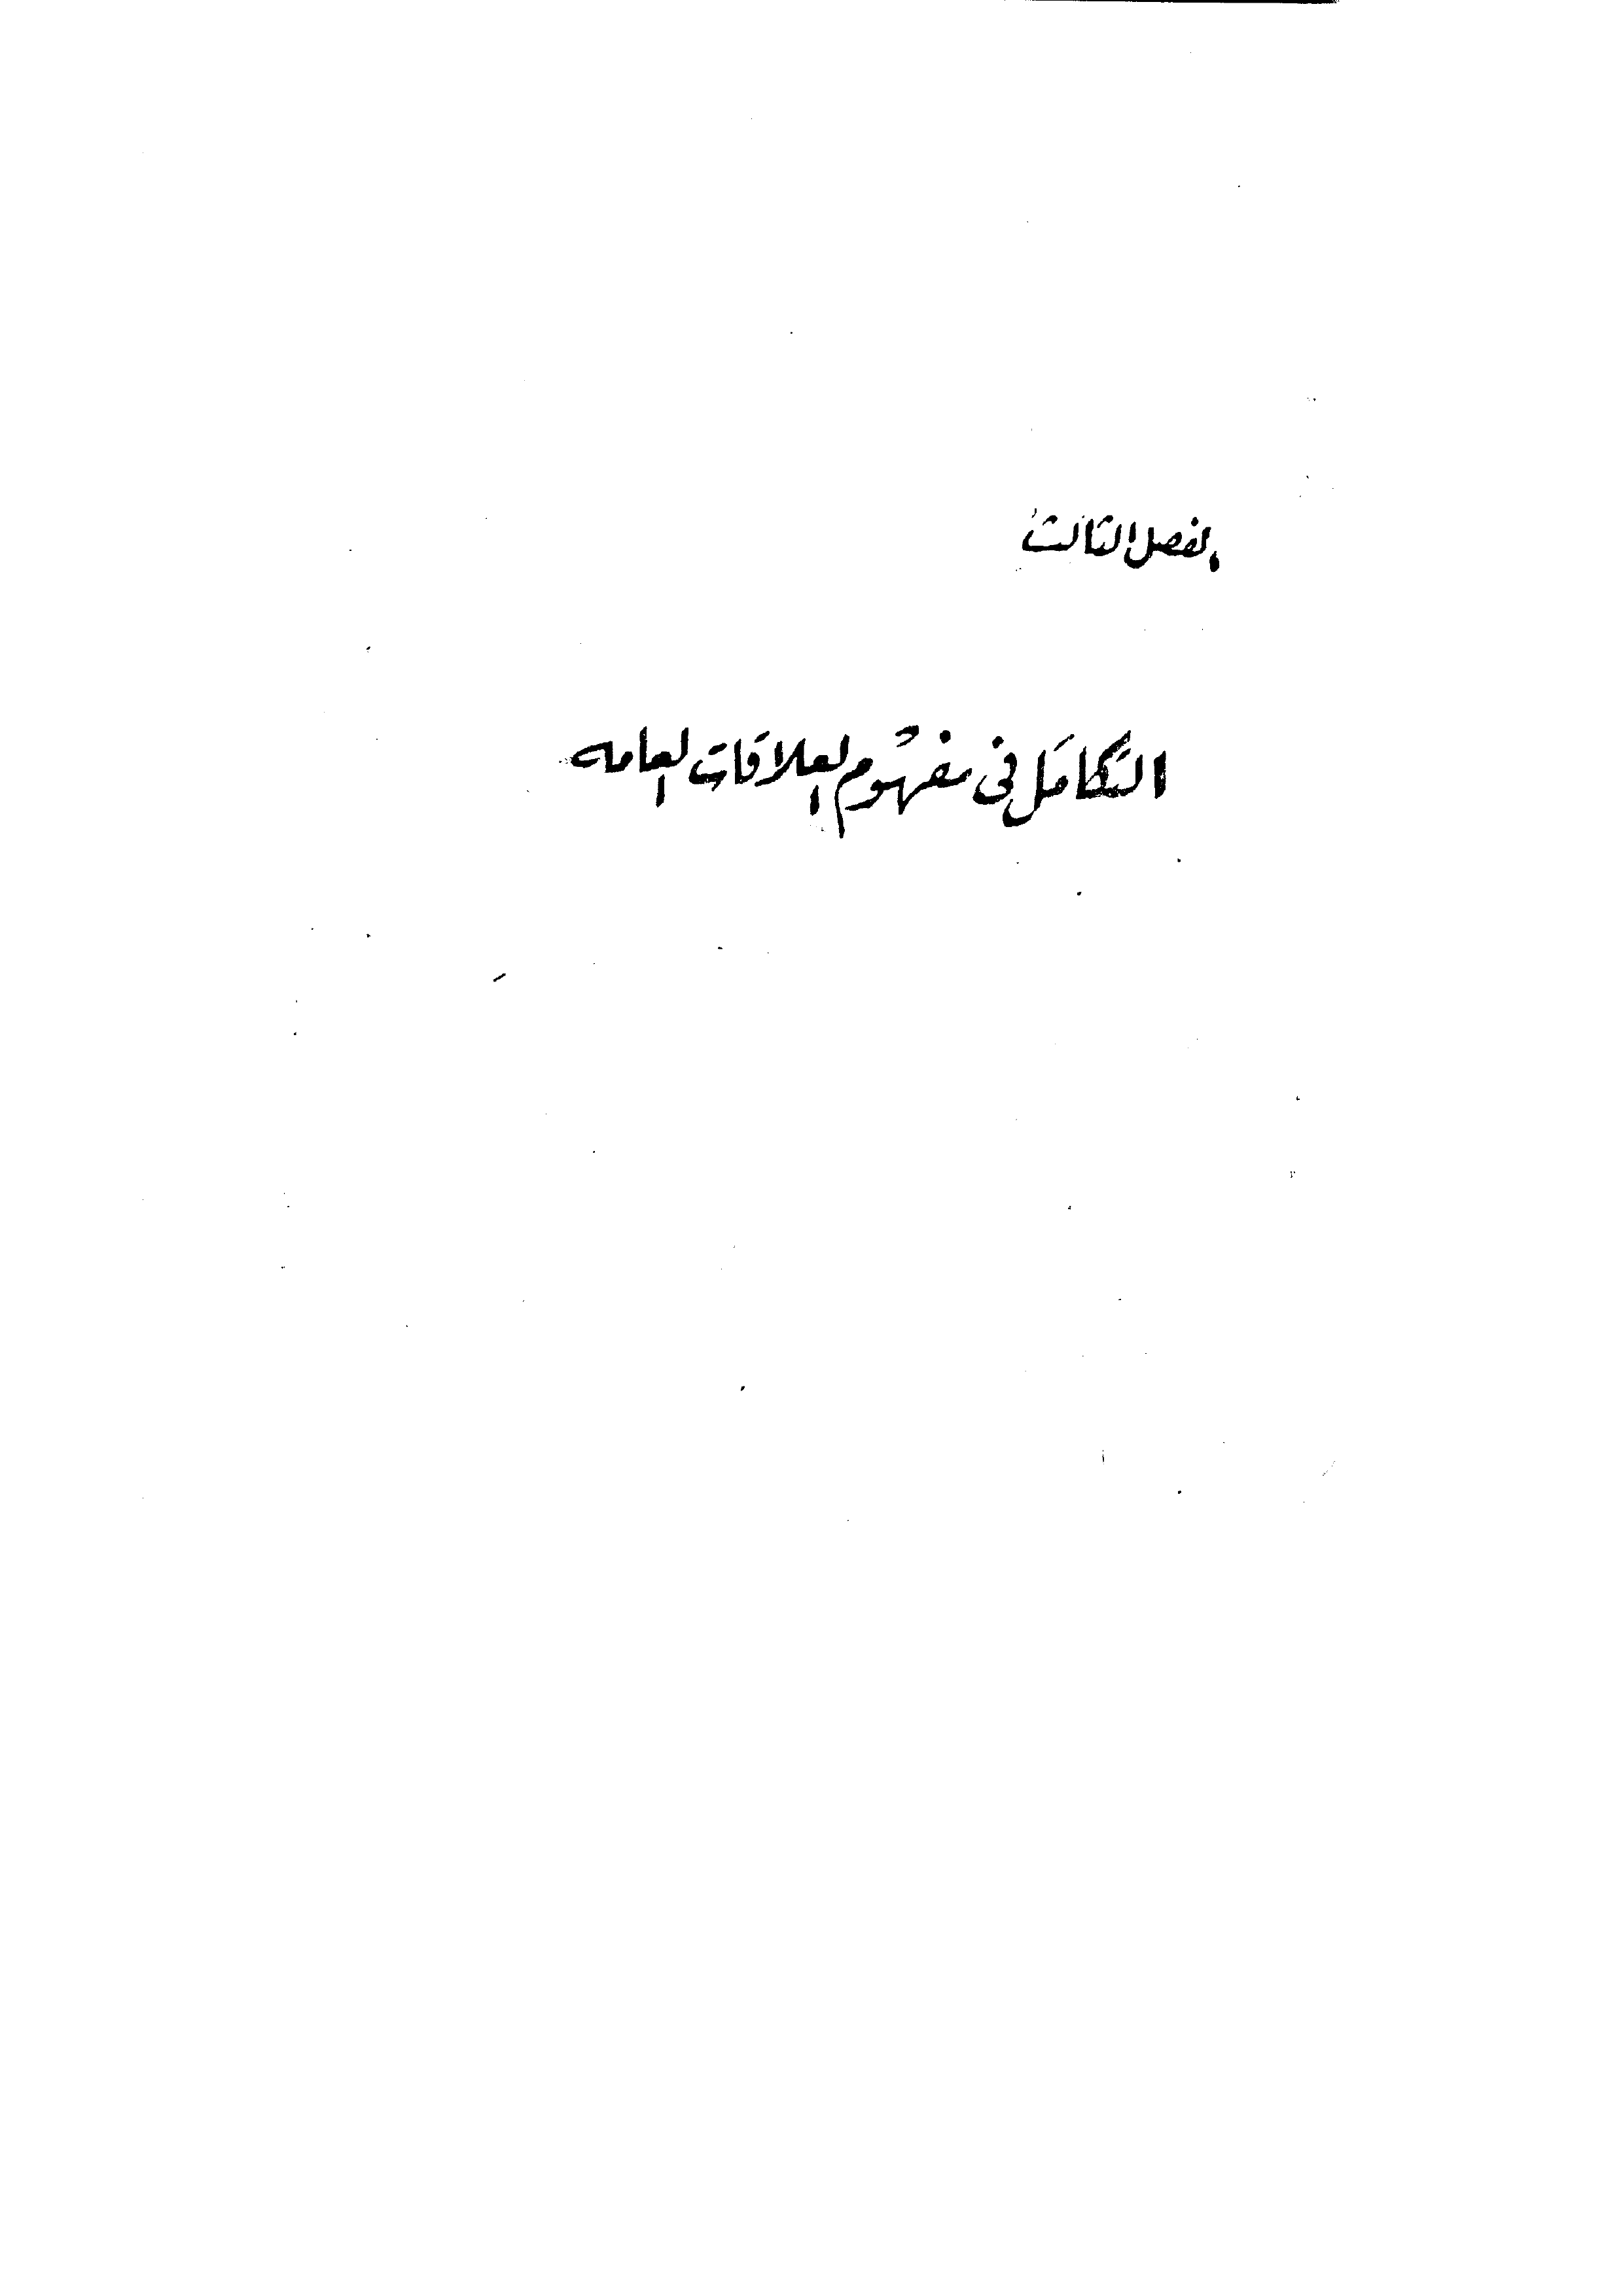 الفصل الثالث
التكامل فى مفهوم العلاقات العامه